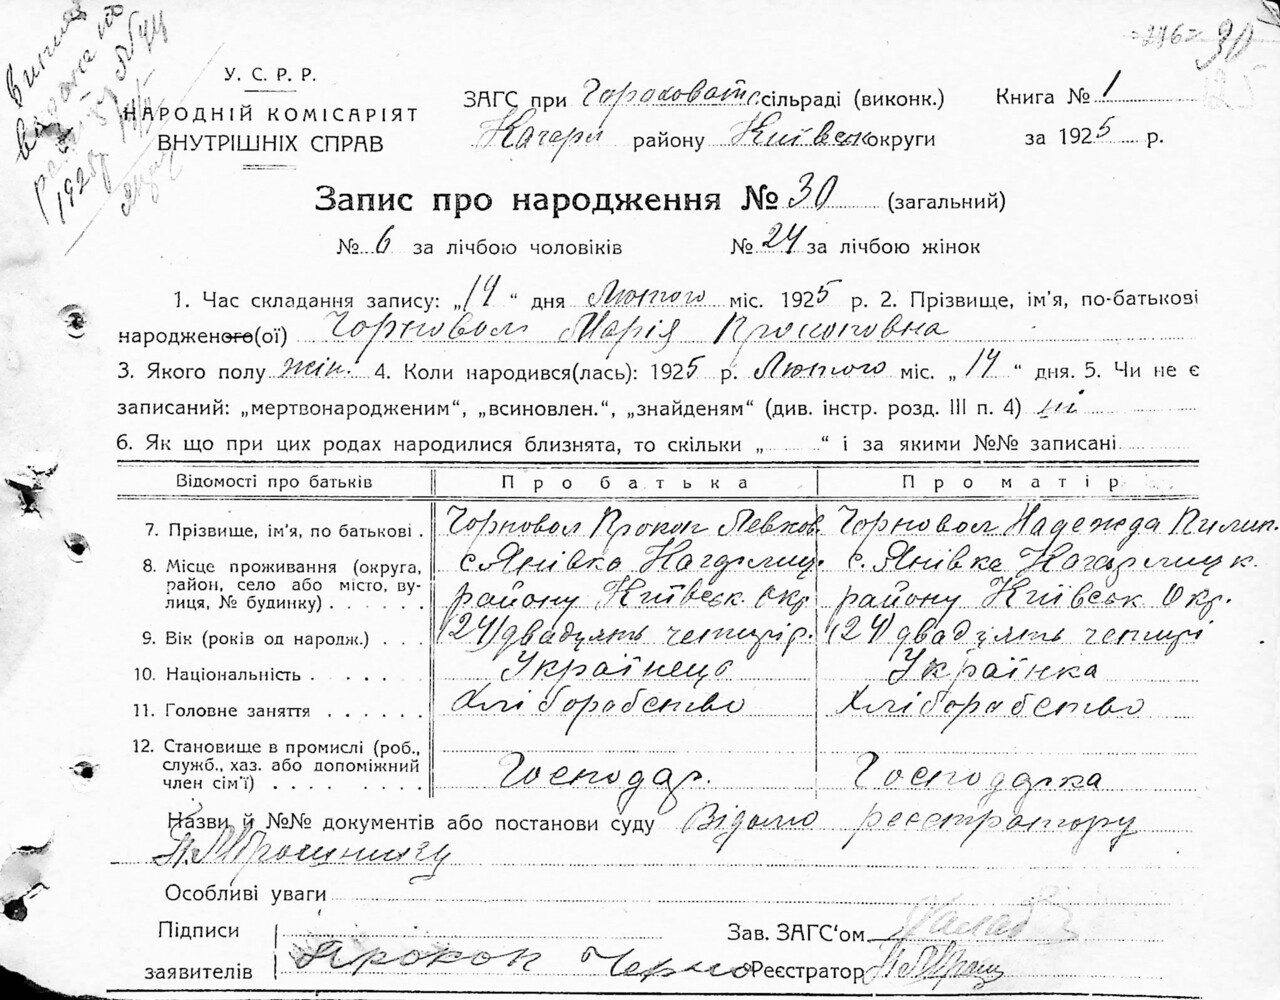 =276= 90
125
Випис
видано
1925
У. С. Р. Р.
НАРОДНІЙ КОМІСАРІЯТ
ВНУТРІШНІХ СПРАВ
ЗАГС при Гороховат. сільраді (виконк.) Книга № 1
Кагарл району Київськ округи за 1925 р.
Запис про народження № 30 (загальний)
№ 6 за лічбою чоловіків № 24 за лічбою жінок
1. Час складання запису: „14“ дня Лютого міс. 1925 р. 2. Прізвище, ім’я, по-батькові
народженого(ої) Чорновол Марія Прокоповна
3. Якого полу жін. 4. Коли народився(лась): 1925 р. Лютого міс. „14“ дня. 5. Чи не є
записаний: „мертвонародженим“, „всиновлен.“, „знайденям“ (див. інстр. розд. III п. 4) ні
6. Як що при цих родах народилися близнята, то скільки „ “ і за якими №№ записані
Відомості про батьків Про батька Про матір
7. Прізвище, ім’я, по батькові . Чорновол Прокоп Левков. Чорновол Надежда Пилип.
8. Місце проживання (округа, с. Янівка Кагарлиц. с. Янівка Кагарлицк.
район, село або місто, ву-
лиця, № будинку) . . . . . . району Київськ. Окр. району Київськ Окр.
9. Вік (років од народж.) . . . (24) двадцять четирі р. (24) двадцять четирі
10. Національність . . . . . . Українець Українка
11. Головне заняття . . . . . . Хліборобство Хліборобство
12. Становище в промислі (роб.,
служб., хаз. або допоміжний
член сім’ї) . . . . . . . . Господар. Господарка
Назви й №№ документів або постанови суду Відомо реєстратору
Особливі уваги
Підписи Зав. ЗАГС‘ом
заявителів Прокоп Черно Реєстратор